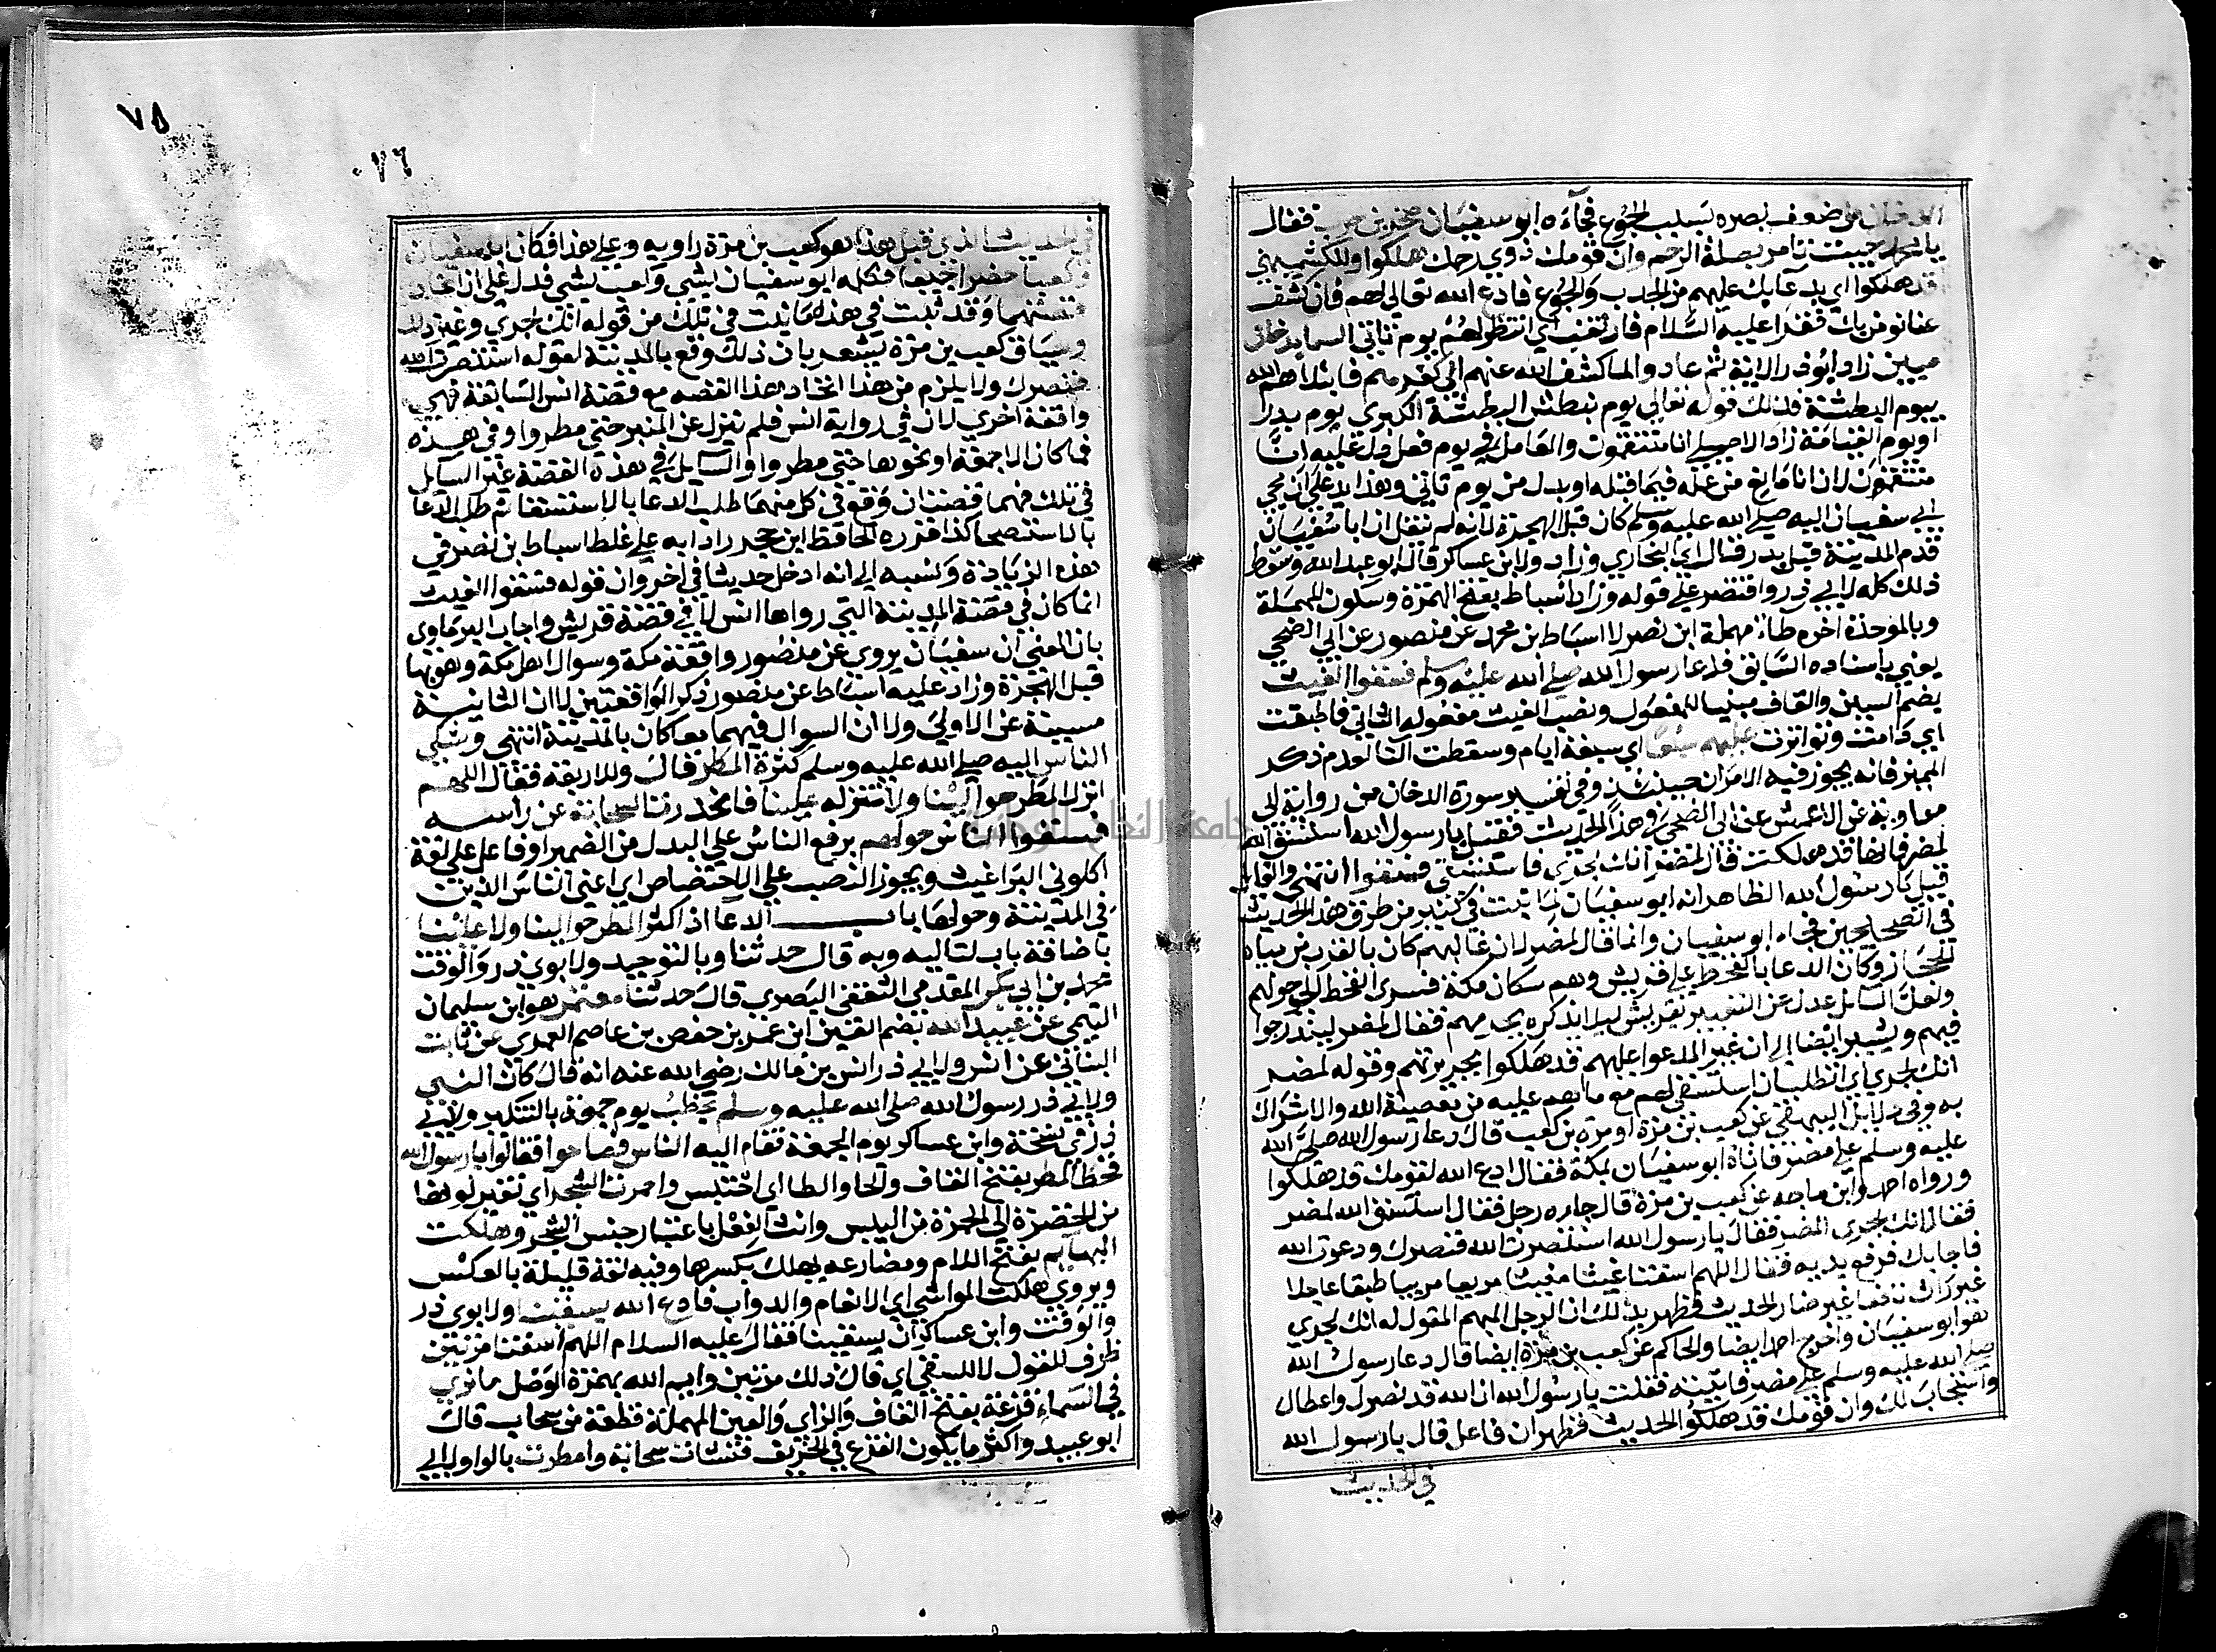 من ضعف بصره بسبب الجوع فجآءه ابو سفيان صخر بن حرب فقال
يا محمد جيت تامر بصلة الرحم وان قومك ذوي رحمك هلكوا وللكشميهني
قد هلكوا اي بدعآيك عليهم من الجدب والجوع فادع الله تعالي لهم فان كشف
عنا نومن بك فقرا عليه السلام فارتقب اي انتظر لهم يوم تاتي السما بدخان
مبين زاد ابو ذر الاية ثم عادوا لما كشف الله عنهم الي كفرهم فابتلاهم الله
بيوم البطشة فذلك قوله تعالي يوم نبطش البطشة الكبري يوم بدر
او يوم القيامة زاد الاصيلي انا منتقمون والعامل في يوم فعل دل عليه انا
منتقمون لان انا مانع من عمله فيما قبله او بدل من يوم تاتي وهذا يدل علي ان مجي
ابي سفيان اليه صلي الله عليه وسلم كان قبل الهجرة لانه لم ينقل ان ابا سفيان
قدم المدينة قبل بدر قال اي البخاري وزاد ولابن عساكر قال ابو عبد الله وسقط
ذلك كله لابي ذر واقتصر علي قوله وزاد اسباط بفتح الهمزة وسكون المهملة
وبالموحدة اخره طاء مهملة ابن نصر لا اسباط بن محمد عن منصور عن ابي الضحي
يعني باسناده السابق فدعا رسول الله صلي الله عليه وسلم فسقوا الغيث
بضم السين والقاف مبنيا للمفعول ونصب الغيث مفعوله الثاني فاطبقت
اي دامت وتواترت عليهم سبعا اي سبعة ايام وسقطت التا لعدم ذكر
المميز فانه يجوز فيه الامران حينئذ وفي تفسير سورة الدخان من رواية ابي
معاوية عن الاعمش عن ابي الضحي في هذا الحديث فقيل يا رسول الله استسق الله
لمضر فانها قد هلكت قال لمضر انك لجري فاستسقي فسقوا انتهي والقايل
فقيل يا رسول الله الظاهر انه ابو سفيان لما ثبت في كثير من طرق هذا الحديث
في الصحيحين فجاءه ابو سفيان وانما قال لمضر لان غالبهم كان بالقرب من مياه
الحجاز وكان الدعا بالقحط علي قريش وهم سكان مكة فسري القحط الي من حولهم
ولعل السائل عدل عن التعبير بقريش ليلا يذكره بجرمهم فقال لمضر ليندرجوا
فيهم ويشير ايضا الي ان غير المدعوا عليهم قد هلكوا بجريرتهم وقوله لمضر
انك لجري اي اتطلب ان استسقي لهم مع ما هم عليه من معصية الله والاشراك
به وفي دلايل البيهقي عن كعب بن مرة او مرة بن كعب قال دعا رسول الله صلي الله
عليه وسلم علي مضر فاتاه ابو سفيان بمكة فقال ادع الله لقومك قد هلكوا
ورواه احمد وابن ماجه عن كعب بن مرة قال جاءه رجل فقال استسق الله لمضر
فقال انك لجري المضر فقال يا رسول الله استنصرت الله فنصرك ودعوت الله
فاجابك فرفع يديه فقال اللهم اسقنا غيثا مغيثا مريعا مريا طبقا عاجلا
غير رائث نافعا غير ضار الحديث فظهر بذلك ان الرجل المبهم المقول له انك لجري
هو ابو سفيان واخرج احمد ايضا والحاكم عن كعب بن مرة ايضا قال دعا رسول الله
صلي الله عليه وسلم علي مضر فاتيته فقلت يا رسول الله ان الله قد نصرك واعطاك
واستجاب لك وان قومك قد هلكوا الحديث فظهر ان فاعل قال يا رسول الله
في الحديث
٧٥
٧٦
في الحديث الذي قبل هذا هو كعب بن مرة راويه وعلي هذا فكان ابا سفيان
وكعبا حضرا جميعا فكلمه ابو سفيان بشي وكعب بشي فدل علي ان اتحاد
قصتهما وقد ثبت في هذه ما ثبت في تلك من قوله انك لجري وغير ذلك
وسياق كعب بن مرة يشعر بان ذلك وقع بالمدينة لقوله استنصرت الله
فنصرك ولا يلزم من هذا اتحاد هذا القصه مع قصة انس السابقة فهي
واقعة اخري لان في رواية انس فلم ينزل عن المنبر حتي مطروا وفي هذه
فما كان الا جمعة او نحوها حتي مطروا والسايل في هذه القصة غير السآيل
في تلك فهما قصتان وقع في كل منهما طلب الدعا بالاستسقا ثم طلب الدعا
بالاستصحا كذا قرره الحافظ ابن حجر رادا به علي غلط اسباط بن نصر في
هذه الزيادة ونسبه الي انه ادخل حديثا في اخر وان قوله فسقوا الغيث
انما كان في قصة المدينة التي رواها انس لا في قصة قريش واجاب البرماوي
بان المعني ان سفيان يروي عن منصور واقعة مكة وسوال اهل مكة وهو بها
قبل الهجرة وزاد عليه اسباط عن منصور ذكر الواقعتين لا ان الثانية
مسببة عن الاولي ولا ان السوال فيهما معا كان بالمدينة انتهي وشكي
الناس اليه صلي الله عليه وسلم كثرة المطر فقال ولا اربعة فقال اللهم
انزل المطر حوالينا ولا تنزله علينا فانحدرت السحابة عن راسه
فسقوا الناس حولهم برفع الناس علي البدل من الضمير او فاعل علي لغة
اكلوني البراغيث ويجوز النصب علي الاختصاص اي اعني الناس الذين
في المدينة وحولها باب الدعا اذا كثر المطر حوالينا ولا علينا
باضافة باب لتاليه وبه قال حدثنا وبالتوحيد ولابوي ذر والوقت
محمد بن ابي بكر المقدمي الثقفي البصري قال حدثنا معتمر هو ابن سليمان
التيمي عن عبيد الله بضم العين ابن عمر بن حفص بن عاصم العمري عن ثابت
البناني عن انس ولابي ذر انس بن مالك رضي الله عنه انه قال كان النبي
ولابي ذر رسول الله صلي الله عليه وسلم يخطب يوم جمعة بالتنكير ولابي
ذر في نسخة وابن عساكر يوم الجمعة فقام اليه الناس فصاحوا فقالوا يا رسول الله
قحط المطر بفتح القاف والحا والطا اي احتبس واحمرت الشجر اي تغير لونها
من الخضرة الي الحمرة من اليبس وانث الفعل باعتبار جنس الشجر وهلكت
البهآيم بفتح اللام ومضارعه يهلك بكسرها وفيه لغة قليلة بالعكس
ويروي هلكت المواشي اي الانعام والدواب فادع الله يسقينا ولابوي ذر
والوقت وابن عساكر ان يسقينا فقال عليه السلام اللهم اسقنا مرتين
ظرف للقول لا للسقي اي قال ذلك مرتين وايم الله بهمزة الوصل ما نري
في السماء قزعة بفتح القاف والزاي والعين المهملة قطعة من سحاب قال
ابو عبيد واكثر ما يكون القزع في الخريف فنشات سحابة وامطرت بالواو ولابي